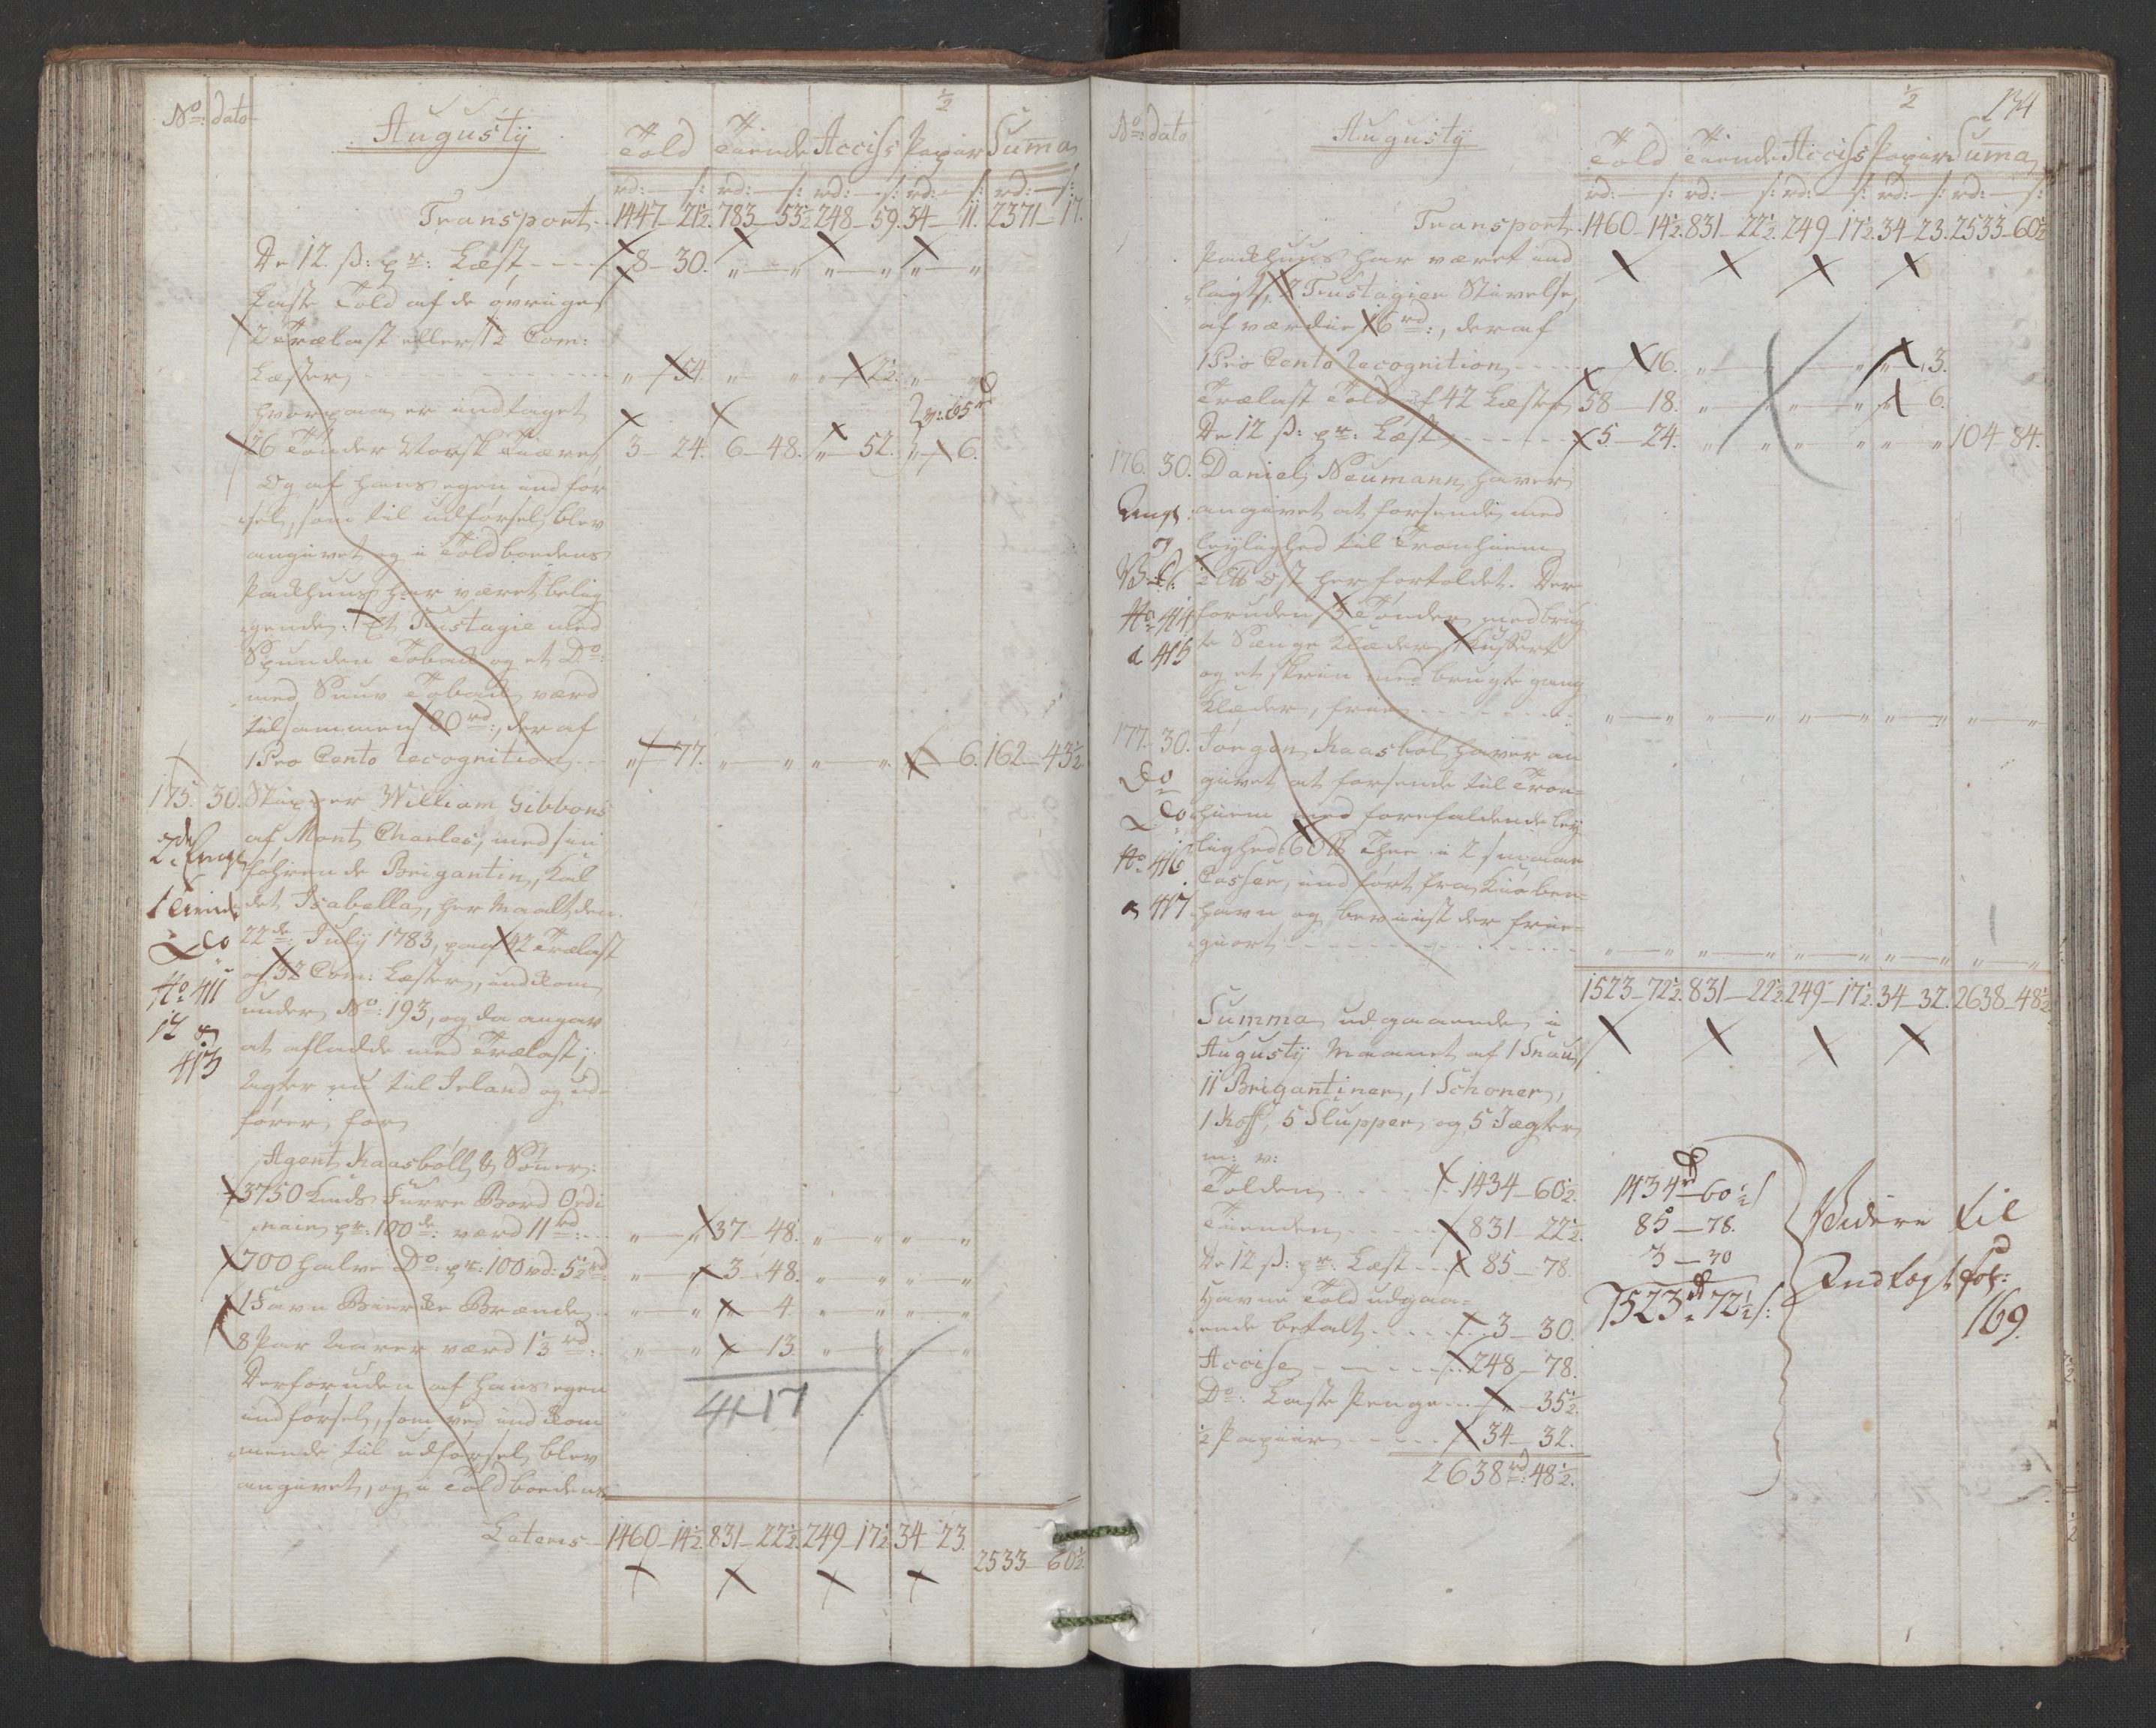 No: dato
Augustÿ
½
Told Tiende Acciss Papiir Suma
rd: s: rd: s: rd: s: rd: s: rd: s:
Transport 1447 - 21½. 783 - 53½ 248 - 59. 34 - 11. 2371 - 17.
De 12 ß: pr: Læst 8 - 30. " " " " " "
Laste Told af de øvrige
2 Trælast eller 12 Com:
Læster " 54. " " " 22½. " "
hvorpaa er indtaget
26 Tønder Norsk Tiære 3 - 24. 6 - 48. " 52. " 6.
Og af hans egen indfør
sel, som til udførsel blev
angivet og i Toldbodens
Pakhuus har været belig
gende. 1 et Fustagie med
Spunden Tobak og et Do:
med Snuv Tobak værd
tilsammen 80 rd:, deraf
1 Pro Cento Recognition " 77. " " " " 6. 162 - 43½
175. 30. Skipper William Gibbons
af Mont Charles, med sin
førende Brigantin, Kal
det Isabella, her Maalt den
22de: July 1783, paa 42 Trælast
og 32 Com: Læster, indkom
under No: 193, og da angav
at afladde med Trælast;
Agter nu til Irland og ud-
fører for
No 411
12 og
413
Agent Kaasbøll & Sønner:
3750 Kinds Furre Bord Ordi
nair pr: 100de: værd 11 rd: " " 37 - 48. " " " "
700 halve Do: pr: 100 rd: 5½ rd: " " 3 - 48. " " " "
1 Favn Birke Brænde " " " 4. " " " "
8 Par Aarer værd 1⅓ rd: " " " 13 " " " "
41-17
Derforuden af hans egen
indførsel, som ved indkom
mende til udførsel blev
angivet, og i Toldbodens
Lateris 1460 - 14½. 831 - 22½. 249 - 17½. 34 - 23.
2533 - 60½.
No: dato
Augustÿ
½
134
Told Tiende Acciss Papiir Suma
rd: s: rd: s: rd: s: rd: s: rd: s:
Transport 1460 - 14½. 831 - 22½. 249 - 17½. 34 - 23. 2533 - 60½
Pakhuus har været ind
lagt, 2 Fustagier Stivelse,
af værdie 16 rd:, deraf
1 Pro Cento Recognition 16. " " " " " 3.
Trælast Told af 42 Læster 58 - 18. " " " " " 6.
De 12 ß: pr: Læst 5 - 24. " " " " " " 104 - 84.
176. 30. Daniel Neumann haver
angivet at forsende med
leÿlighed til Tronhiem
2 ℔ Ost her fortoldet. Der
foruden 3 Tønder med brug
te Senge Klæder, 1 Kuffert
og et skrin med brugte gang
Klæder, frie " " " " " " " " " "
No 414
a 415
177. 30. Jørgen Kaasbøl haver an
givet at forsende til Tron-
hiem med forefaldende leÿ
lighed 60 ℔ Thee i 2 smaae
Casser, indført fra Kiøben-
havn og beviist der frie-
giort " " " " " " " " " "
Do
Do
No 416
a 417
1523 - 72½. 831 - 22½. 249 - 17½. 34 - 32. 2638 - 48½
Summa udgaaende i
Augustÿ Maanet af 1 Snau,
11 Brigantiner, 1 Schoner,
1 Koff, 5 Slupper og 5 Jægter
m: v:
Tolden 1434 - 60½.
Tienden 831 - 22½.
De 12 ß: pr: Læst 85 - 78.
Havne Told udgaa-
ende betalt 3 - 30.
Accise 248 - 78.
Do: Laste Penge " 35½.
½ Papiir 34 - 32.
2638 rd: 48½.
1434 rd 60½ s
85 - 78.
3 - 30
1523 rd 72½ s:
Videre til
Indtægt fol:
169.